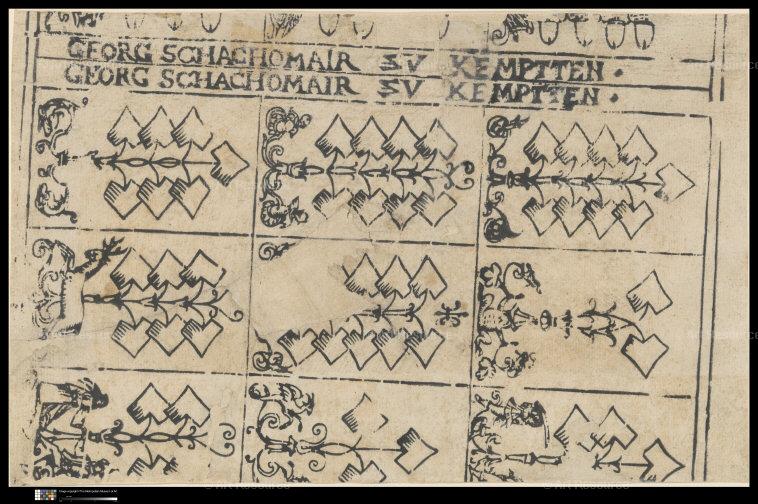 GEORG SCHACHOMAIR ZV KEMPTTEN .
GEORG SCHACHOMAIR ZV KEMPTTEN .